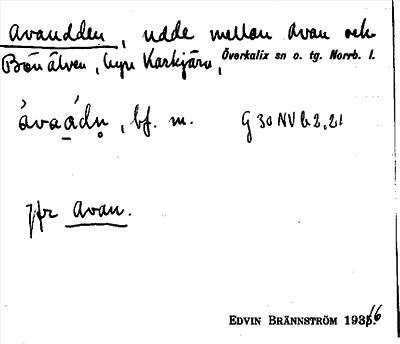 Avaudden, udde mellan Avan och
Bönälven, byn Karkjärv, Överkalix sn o. tg. Norrb. l.
ávaa̱dn̥, bf. m. G 30 NV b 2, 21
Jfr Avan.
EDVIN BRÄNNSTRÖM 1936